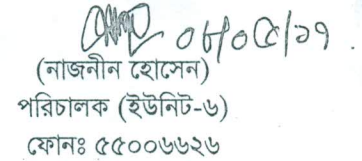 ০৮/০৫/১৭
(নাজনীন হোসেন)
পরিচালক (ইউনিট-৬)
ফোনঃ ৫৫০০৬৬২৬